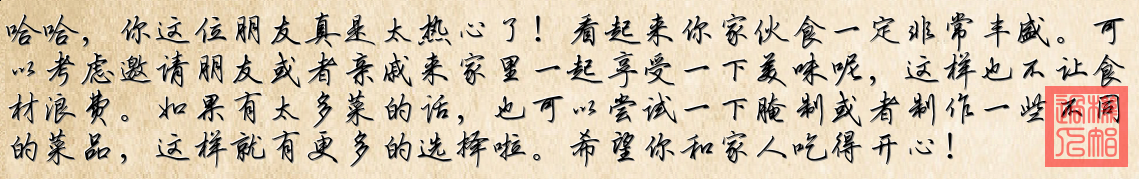 哈哈，你这位朋友真是太热心了！看起来你家伙食一定非常丰盛。可
以考虑邀请朋友或者亲戚来家里一起享受一下美味呢，这样也不让食
材浪费。如果有太多菜的话，也可以尝试一下腌制或者制作一些不同
的菜品，这样就有更多的选择啦。希望你和家人吃得开心！